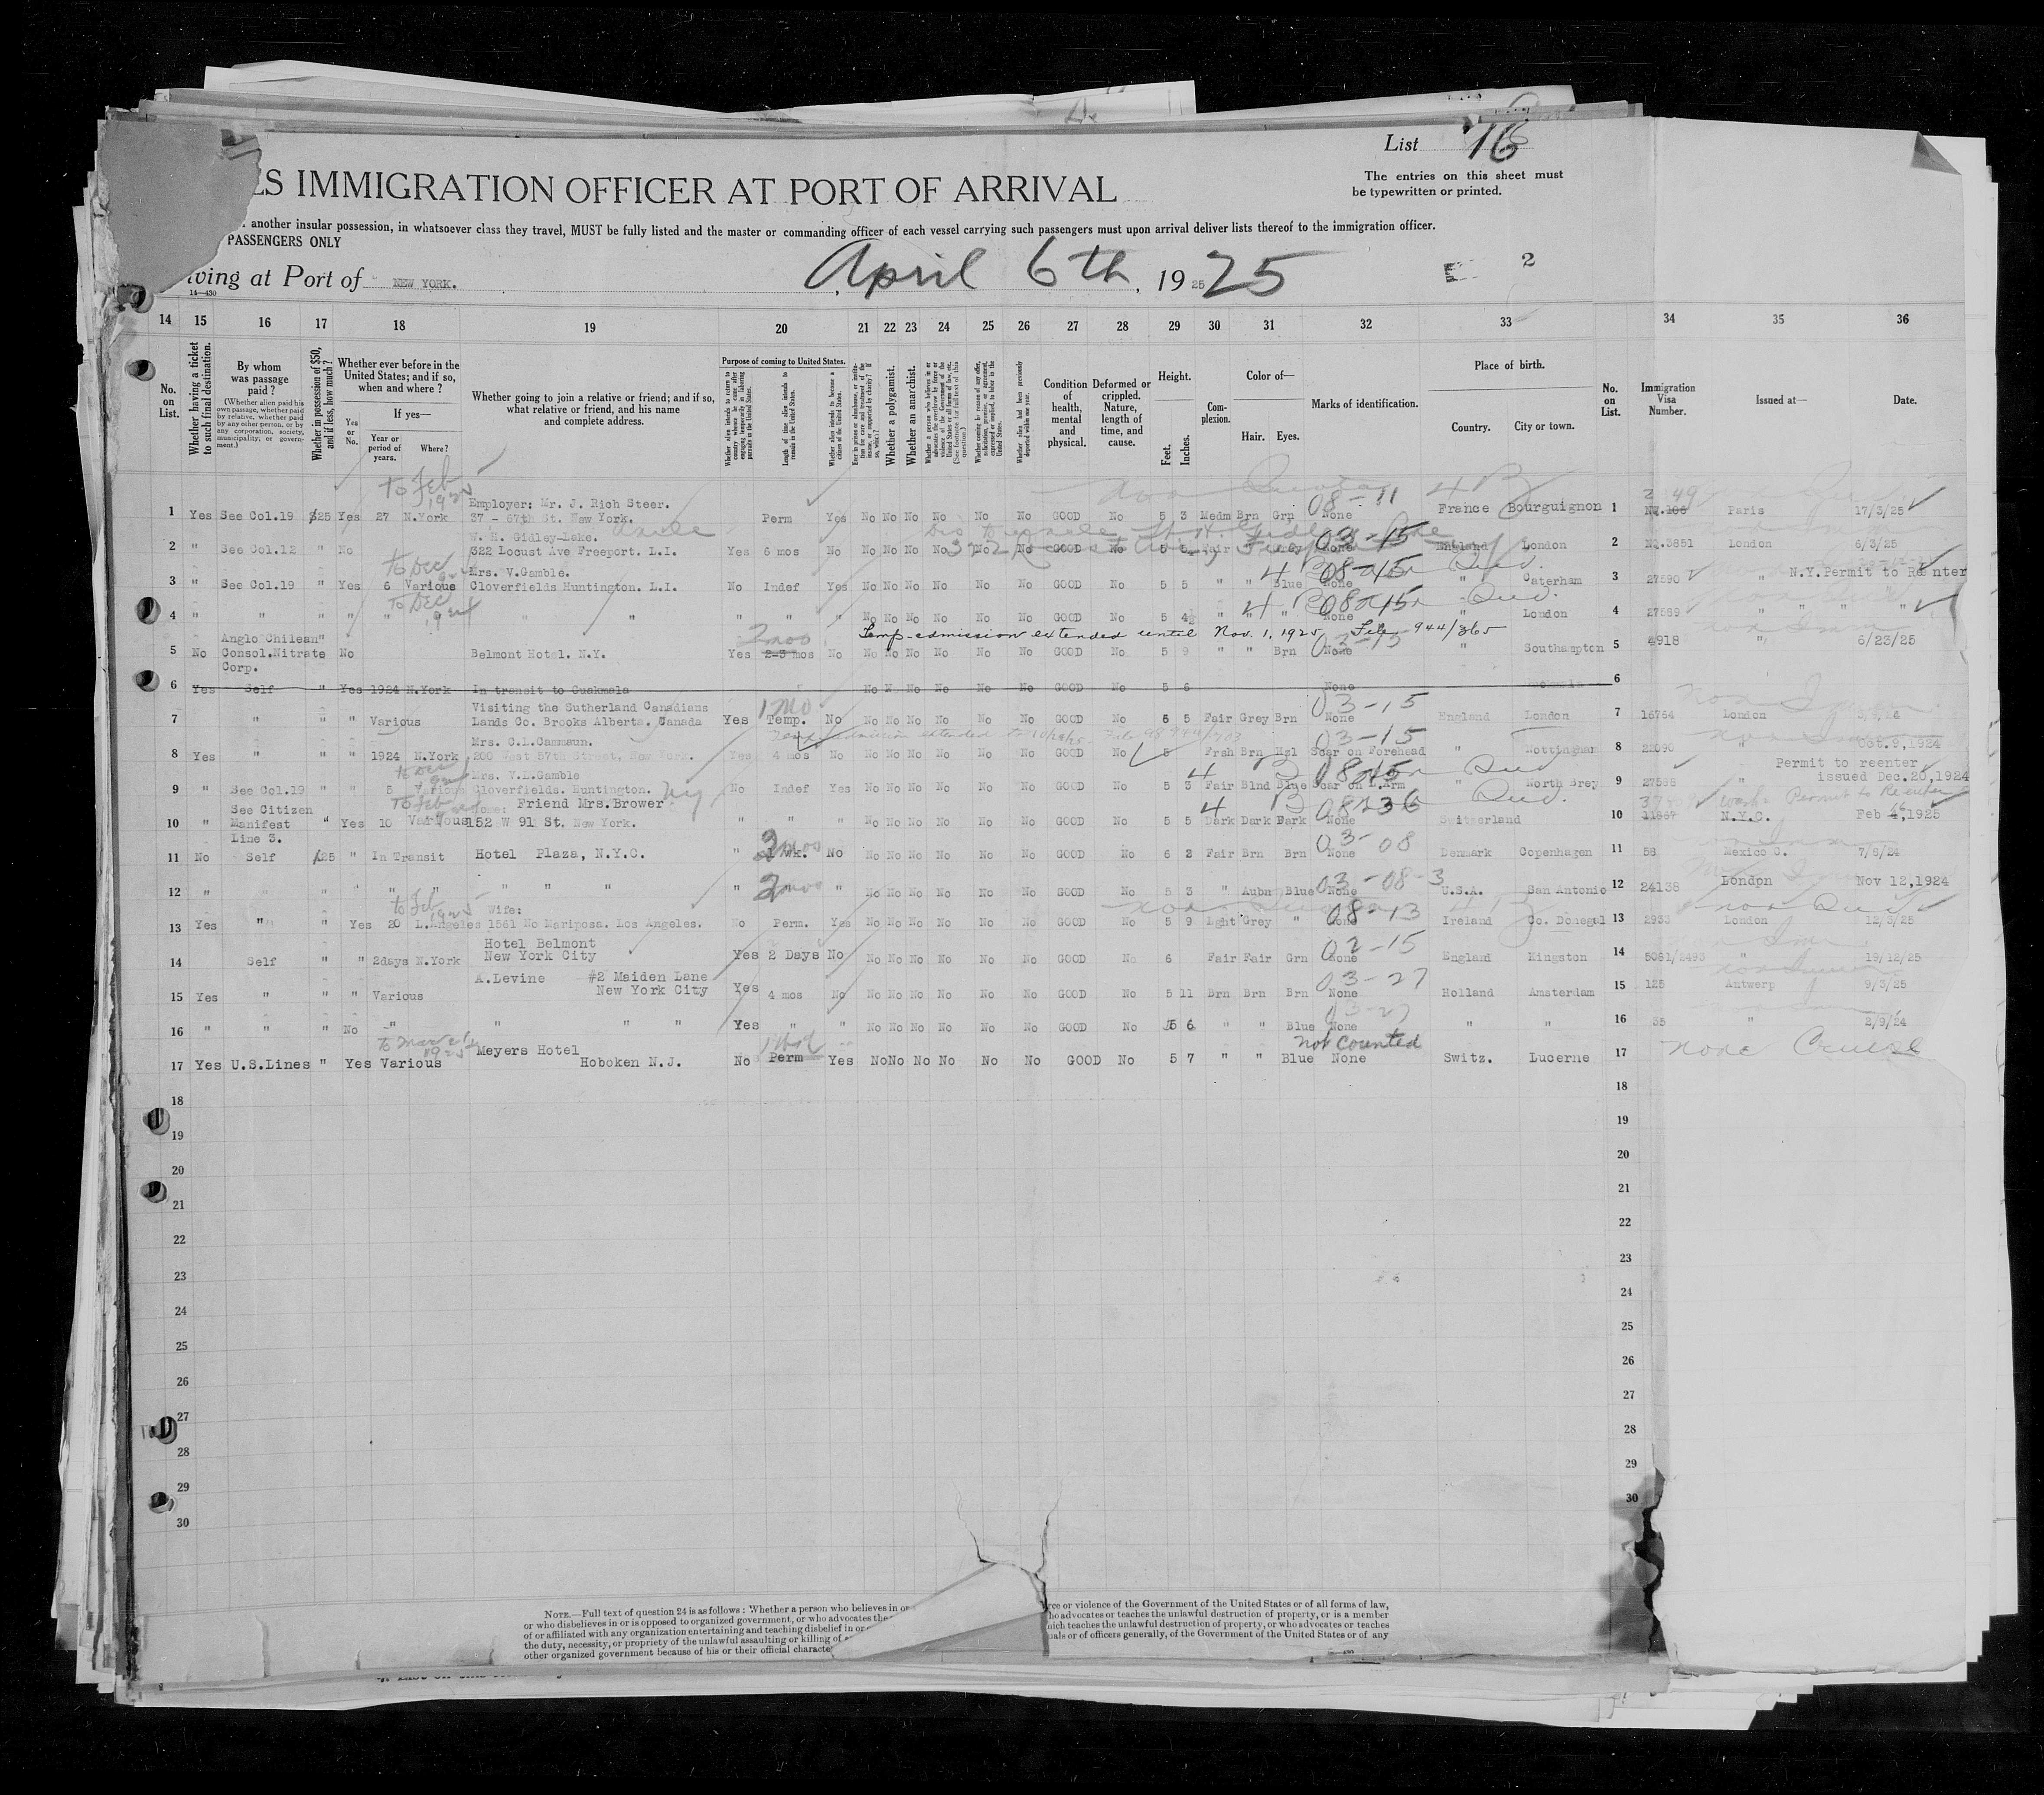 List 16
The entries on this sheet must
be typewritten or printed.
ES IMMIGRATION OFFICER AT PORT OF ARRIVAL
another insular possession, in whatsoever class they travel, MUST be fully listed and the master or commanding officer of each vessel carrying such passengers must upon arrival deliver lists thereof to the immigration officer.
PASSENGERS ONLY
iving at Port of NEW YORK. April 6th, 1925 25
2
14—430
14 15 16 17 18 19 20 21 22 23 24 25 26 27 28 29 30 31 32 33 34 35 36
No. on List.
Whether having a ticket to such final destination.
By whom was passage paid?
(Whether alien paid his own passage, whether paid by relative, whether paid by any other person, or by any corporation, society, municipality, or government.)
Whether in possession of $50, and if less, how much?
Whether ever before in the United States; and if so, when and where?
Yes or No.
If yes—
Year or period of years.
Where?
Whether going to join a relative or friend; and if so, what relative or friend, and his name and complete address.
Purpose of coming to United States.
Length of time alien intends to remain in the United States.
Whether alien intends to become a citizen of the United States.
Whether a polygamist.
Whether an anarchist.
Condition of health, mental and physical.
Deformed or crippled. Nature, length of time, and cause.
Height.
Feet. Inches.
Complexion.
Color of—
Hair. Eyes.
Marks of identification.
Place of birth.
Country. City or town.
No. on List.
Immigration Visa Number.
Issued at—
Date.
to Feb 1925
Employer: Mr. J. Rich Steer.
08-11
1 Yes See Col.19 $25 Yes 27 N.York 37 - 57th St. New York. Perm Yes No No No No No No GOOD No 5 3 Medm Brn Grn None France Bourguignon 1 Paris 17/3/25
W. H. Gidley-Lake. Uncle
03-15
2 " See Col.12 " No 322 Locust Ave Freeport. L.I. Yes 6 mos No No No No No No No GOOD No 5 5 Fair None England London 2 No.3851 London 6/3/25
to Dec
Mrs. V.Gamble.
4 08-15
3 " See Col.19 " Yes 6 Various Cloverfields Huntington. L.I. No Indef Yes No No No No No No GOOD No 5 5 " " Blue None " Caterham 3 27590 " N.Y.Permit to Reenter
to Dec
4 08-15
4 " " " " " " " " " " " No No No No No No GOOD No 5 4½ " " " None " London 4 27589 " " " "
Temp-admission extended until Nov. 1, 1925 File 944/365
Anglo Chilean
2mos
5 No Consol.Nitrate No Belmont Hotel. N.Y. Yes 2-3 mos No No No No No No No GOOD No 5 9 " " Brn None " Southampton 5 4918 " 6/23/25
Corp.
6 Yes Self " Yes 1924 N.York In transit to No No No No No GOOD No 5 6 None 6
Visiting the Sutherland Canadians
1 mo
03-15
7 " " " Various Lands Co. Brooks Alberta. Canada Yes Temp. No No No No No No No GOOD No 5 5 Fair Grey Brn None England London 7 16764 London
03-15
8 Yes " " " 1924 N.York 200 West 57th Street, New York. Yes 4 mos No No No No No No No GOOD No 5 Frsh Brn Hzl Scar on Forehead " Nottingham 8 22090 " Oct.9,1924
Permit to reenter
Mrs. V.L.Gamble
9 " See Col.19 " " 5 Various Cloverfields. Huntington. NY No Indef Yes No No No No No No GOOD No 5 3 Fair Blnd Blue Scar on L.Arm " North Brey 9 27588 " issued Dec.20,1924
See Citizen
Friend Mrs.Brower
Permit to Reenter
10 " Manifest " Yes 10 Various 152 W 91 St. New York. " " " No No No No No No GOOD No 5 5 Dark Dark Dark None Switzerland 10 N.Y.C. Feb 4,1925
Line 3.
2mos
03-08
11 No Self $25 " In Transit Hotel Plaza, N.Y.C. " 1 Wk. No No No No No No No GOOD No 6 2 Fair Brn Brn None Denmark Copenhagen 11 58 Mexico C. 7/8/24
2mos
03-08-3
12 " " " " " " " " " " " No No No No No No GOOD No 5 3 " Aubn Blue None U.S.A. San Antonio 12 24138 London Nov 12,1924
to Feb 1925
Wife:
08-13
13 Yes " " Yes 20 L.Angeles 1561 No Mariposa. Los Angeles. No Perm. Yes No No No No No No GOOD No 5 9 Lght Grey " None Ireland Co. Donegal 13 2933 London 12/3/25
Hotel Belmont
02-15
14 Self " " 2days N.York New York City Yes 2 Days No No No No No No No GOOD No 6 Fair Fair Grn None England Kingston 14 5081/2493 " 19/12/25
A.Levine #2 Maiden Lane
03-27
15 Yes " " " Various New York City Yes 4 mos No No No No No No No GOOD No 5 11 Brn Brn Brn None Holland Amsterdam 15 125 Antwerp 9/3/25
03-27
16 " " " No " " " " Yes " " No No No No No No GOOD No 5 6 " " Blue None " " 16 35 " 2/9/24
to March 1925
not counted
Meyers Hotel
17 Yes U.S.Lines " Yes Various Hoboken N.J. No Perm Yes No No No No No No GOOD No 5 7 " " Blue None Switz. Lucerne 17
18 18
19 19
20 20
21 21
22 22
23 23
24 24
25 25
26 26
27 27
28 28
29 29
30 30
NOTE.—Full text of question 24 is as follows: Whether a person who believes in or
rce or violence of the Government of the United States or of all forms of law,
or who disbelieves in or is opposed to organized government, or who advocates the
ho advocates or teaches the unlawful destruction of property, or is a member
of or affiliated with any organization entertaining and teaching disbelief in or
hich teaches the unlawful destruction of property, or who advocates or teaches
the duty, necessity, or propriety of the unlawful assaulting or killing of
uals or of officers generally, of the Government of the United States or of any
other organized government because of his or their official character